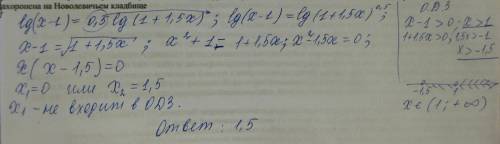 ахоронена на Новодевичьем кладбище
lg(x-1) = 0,5lg(1+1,5x); lg(x-1) = lg(1+1,5x)^0,5;
x-1 = √1+1,5x; x²+1= 1+1,5x; x²-1,5x=0;
x(x-1,5)=0
x₁=0 или x₂=1,5
x₁ - не входит в ОДЗ.
Ответ: 1,5
ОДЗ
x-1>0; x>1
1+1,5x>0; 1,5x>-1
x>-1,5
-1,5 1
x∈(1;+∞)